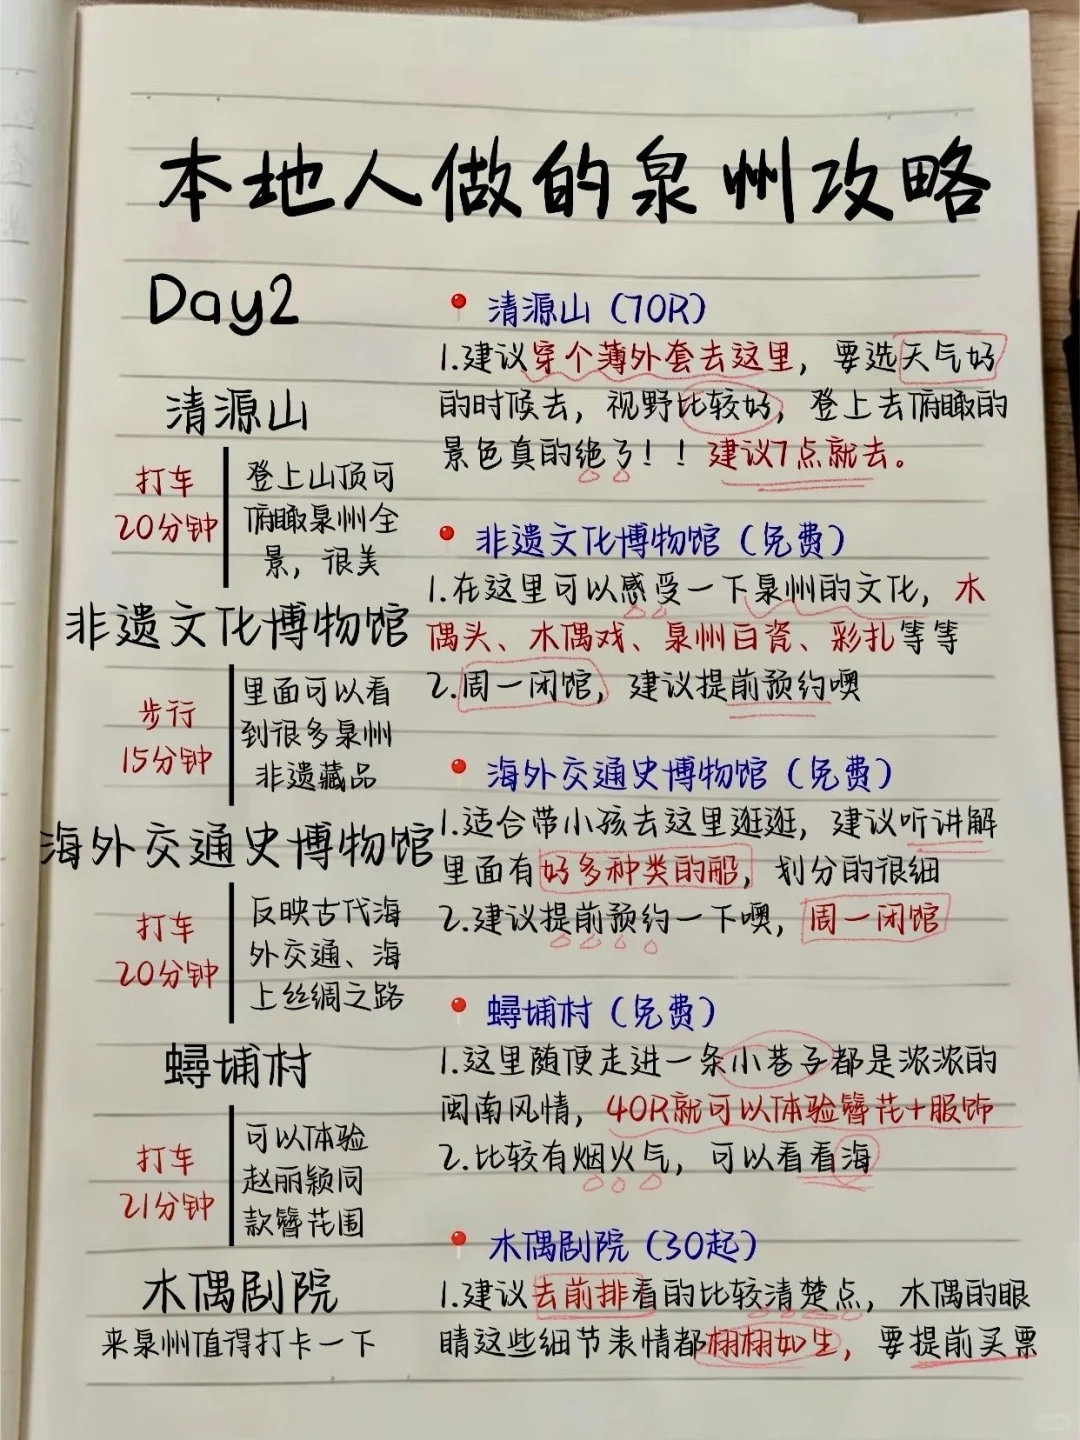 本地人做的泉州攻略
Day2
清源山
打车
20分钟
登上山顶可
俯瞰泉州全
景，很美
非遗文化博物馆
步行
15分钟
里面可以看
到很多泉州
非遗藏品
海外交通史博物馆
打车
20分钟
反映古代海
外交通、海
上丝绸之路
蟳埔村
打车
21分钟
可以体验
赵丽颖同
款簪花围
木偶剧院
来泉州值得打卡一下
清源山（70R）
1.建议穿个薄外套去这里，要选天气好
的时候去，视野比较好，登上去俯瞰的
景色真的绝了！！建议7点就去。
非遗文化博物馆（免费）
1.在这里可以感受一下泉州的文化，木
偶头、木偶戏、泉州白瓷、彩扎等等
2.周一闭馆，建议提前预约噢
海外交通史博物馆（免费）
1.适合带小孩去这里逛逛，建议听讲解
里面有好多种类的船，划分的很细
2.建议提前预约一下噢，周一闭馆
蟳埔村（免费）
1.这里随便走进一条小巷子都是浓浓的
闽南风情，40R就可以体验簪花+服饰
2.比较有烟火气，可以看看海
木偶剧院（30起）
1.建议去前排看的比较清楚点，木偶的眼
睛这些细节表情都栩栩如生，要提前买票